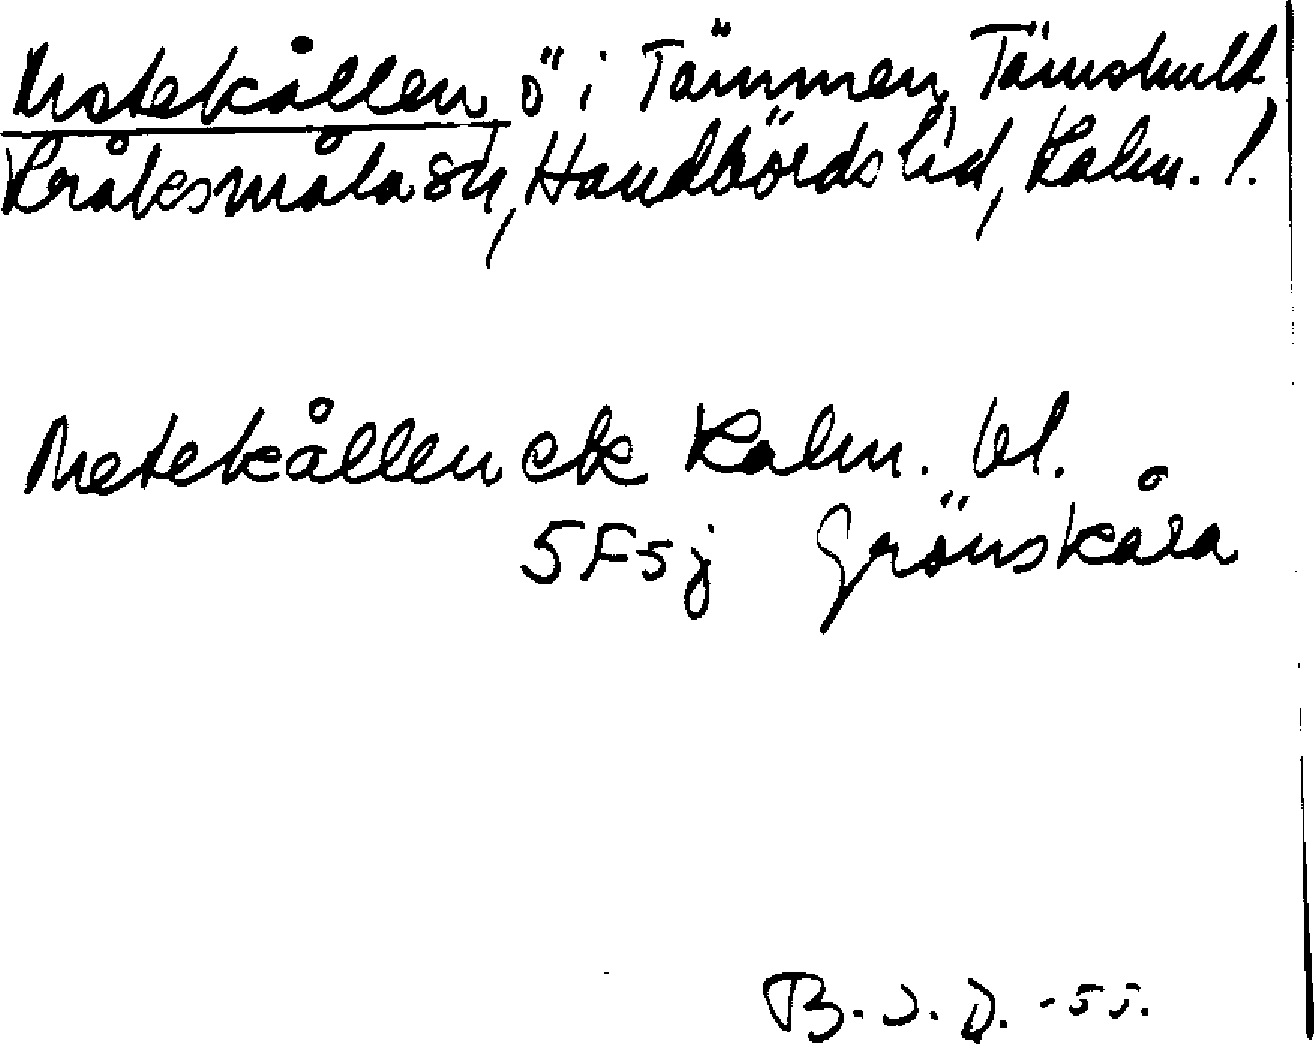 Metekållen, ö i Tämmen, Tämshult,
Kråksmåla sn, Handbörds hd, Kalm. l.
Metekållen ek Kalm. bl.
5F5j Grönskåra
B. J. D. -55.